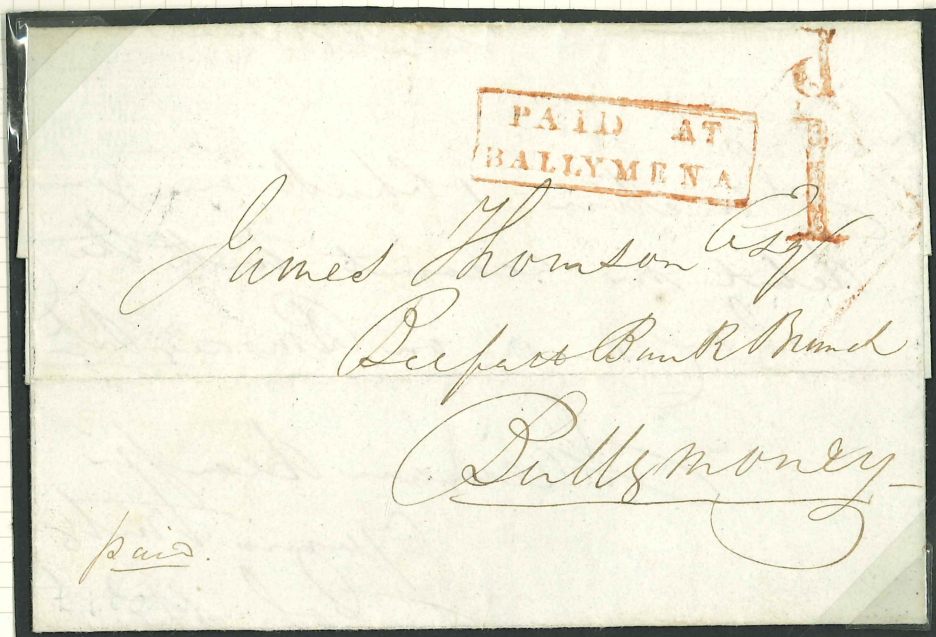 P
1
PAID AT
BALLYMENA
James Thomson Esqr
Belfast Bank Branch
Ballymoney
paid.